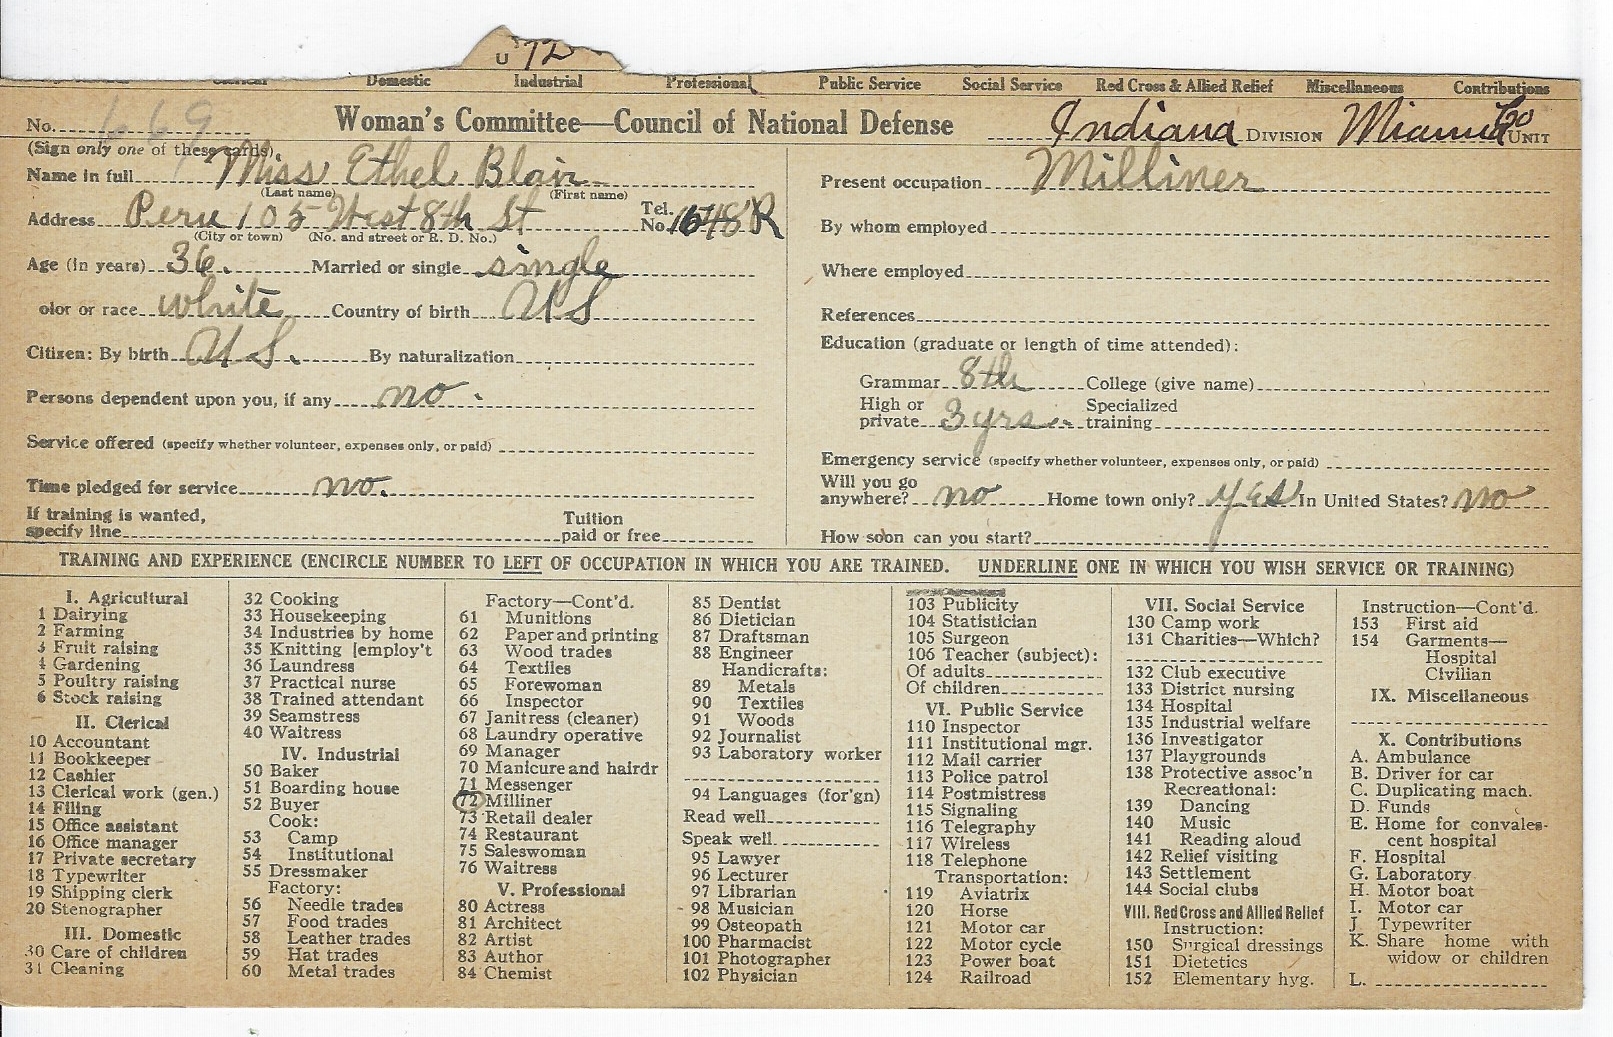 U 72
Domestic Industrial Professional Public Service Social Service Red Cross & Allied Relief Miscellaneous Contributions
No. 669 Woman's Committee—Council of National Defense Indiana DIVISION Miami Co UNIT
(Sign only one of these cards)
Name in full Miss Ethel Blair
(Last name) (First name)
Address Peru 105 West 8th St Tel. No. 1648R
(City or town) (No. and street or R. D. No.)
Age (in years) 36. Married or single single
olor or race white Country of birth U S
Citizen: By birth U S. By naturalization
Persons dependent upon you, if any no.
Service offered (specify whether volunteer, expenses only, or paid)
Time pledged for service no.
If training is wanted, specify line Tuition paid or free
Present occupation Milliner
By whom employed
Where employed
References
Education (graduate or length of time attended):
Grammar 8th College (give name)
High or private 3 yrs. Specialized training
Emergency service (specify whether volunteer, expenses only, or paid)
Will you go anywhere? no Home town only? yes In United States? no
How soon can you start?
TRAINING AND EXPERIENCE (ENCIRCLE NUMBER TO LEFT OF OCCUPATION IN WHICH YOU ARE TRAINED. UNDERLINE ONE IN WHICH YOU WISH SERVICE OR TRAINING)
I. Agricultural
1 Dairying
2 Farming
3 Fruit raising
4 Gardening
5 Poultry raising
6 Stock raising
II. Clerical
10 Accountant
11 Bookkeeper
12 Cashier
13 Clerical work (gen.)
14 Filing
15 Office assistant
16 Office manager
17 Private secretary
18 Typewriter
19 Shipping clerk
20 Stenographer
III. Domestic
30 Care of children
31 Cleaning
32 Cooking
33 Housekeeping
34 Industries by home
35 Knitting [employ't
36 Laundress
37 Practical nurse
38 Trained attendant
39 Seamstress
40 Waitress
IV. Industrial
50 Baker
51 Boarding house
52 Buyer
Cook:
53 Camp
54 Institutional
55 Dressmaker
Factory:
56 Needle trades
57 Food trades
58 Leather trades
59 Hat trades
60 Metal trades
Factory—Cont'd.
61 Munitions
62 Paper and printing
63 Wood trades
64 Textiles
65 Forewoman
66 Inspector
67 Janitress (cleaner)
68 Laundry operative
69 Manager
70 Manicure and hairdr
71 Messenger
72 Milliner
73 Retail dealer
74 Restaurant
75 Saleswoman
76 Waitress
V. Professional
80 Actress
81 Architect
82 Artist
83 Author
84 Chemist
85 Dentist
86 Dietician
87 Draftsman
88 Engineer
Handicrafts:
89 Metals
90 Textiles
91 Woods
92 Journalist
93 Laboratory worker
94 Languages (for'gn)
Read well
Speak well
95 Lawyer
96 Lecturer
97 Librarian
98 Musician
99 Osteopath
100 Pharmacist
101 Photographer
102 Physician
103 Publicity
104 Statistician
105 Surgeon
106 Teacher (subject):
Of adults
Of children
VI. Public Service
110 Inspector
111 Institutional mgr.
112 Mail carrier
113 Police patrol
114 Postmistress
115 Signaling
116 Telegraphy
117 Wireless
118 Telephone
Transportation:
119 Aviatrix
120 Horse
121 Motor car
122 Motor cycle
123 Power boat
124 Railroad
VII. Social Service
130 Camp work
131 Charities—Which?
132 Club executive
133 District nursing
134 Hospital
135 Industrial welfare
136 Investigator
137 Playgrounds
138 Protective assoc'n
Recreational:
139 Dancing
140 Music
141 Reading aloud
142 Relief visiting
143 Settlement
144 Social clubs
VIII. Red Cross and Allied Relief
Instruction:
150 Surgical dressings
151 Dietetics
152 Elementary hyg.
Instruction—Cont'd.
153 First aid
154 Garments—
Hospital
Civilian
IX. Miscellaneous
X. Contributions
A. Ambulance
B. Driver for car
C. Duplicating mach.
D. Funds
E. Home for convales-
cent hospital
F. Hospital
G. Laboratory
H. Motor boat
I. Motor car
J. Typewriter
K. Share home with
widow or children
L.